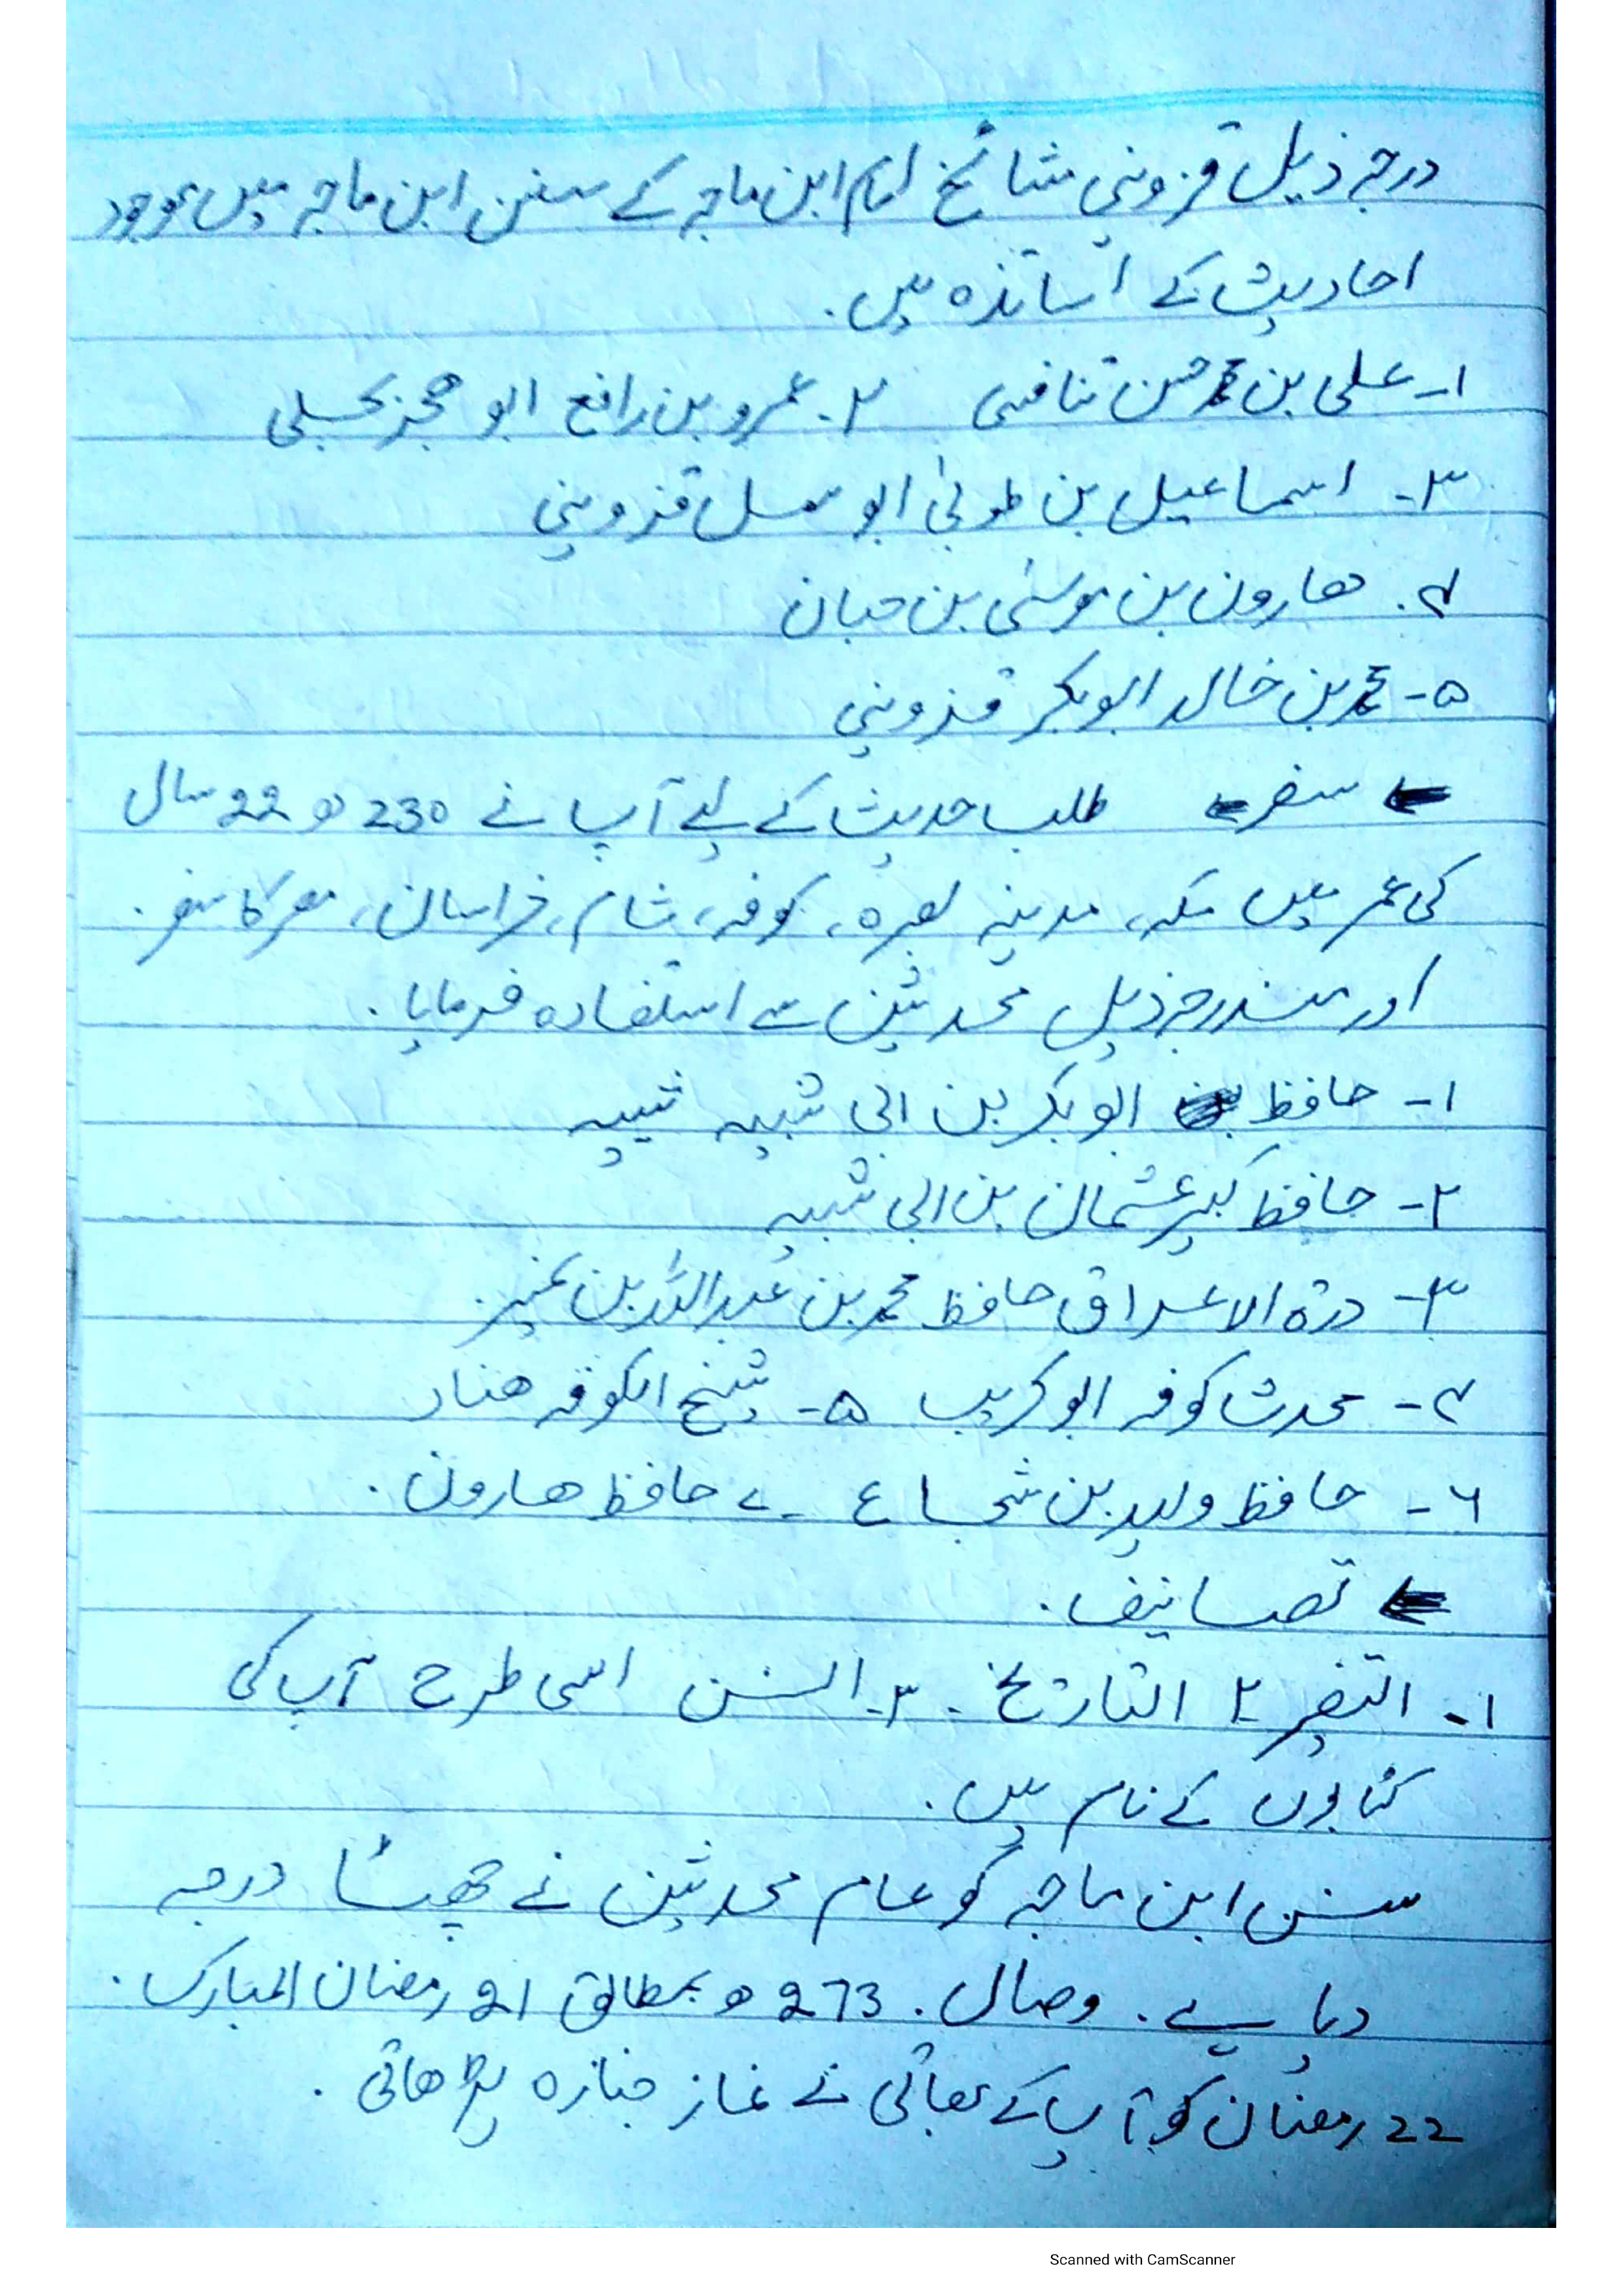 درجہ ذیل قزوینی مشائخ امام ابن ماجہ کے سنن ابن ماجہ میں موجود
احادیث کے اساتذہ ہیں۔
۱۔ علی بن محمد حسن تنافسی ۲۔ عمرو بن رافع ابو حجر بجلی
۳۔ اسماعیل بن طوبیٰ ابو سہل قزوینی
۴۔ ھارون بن موسیٰ بن حبان
۵۔ محمد بن خالد ابوبکر قزوینی
سفر طلب حدیث کے لیے آپ نے 230ھ 22 سال
کی عمر میں مکہ، مدینہ بصرہ، کوفہ، شام، خراسان، مصر کا سفر۔
اور مندرجہ ذیل محدثین سے استفادہ فرمایا۔
۱۔ حافظ ابوبکر بن ابی شیبہ شیبہ
۲۔ حافظ کبیر عثمان بن ابی شیبہ
۳۔ درۃ الاعراق حافظ محمد بن عبداللہ بن نمیر۔
۴۔ محدث کوفہ ابو کریب ۵۔ شیخ الکوفہ ھناد
۶۔ حافظ ولید بن شجاع ۷۔ حافظ ھارون۔
تصانیف۔
۱۔ التفسیر ۲ التاریخ۔ ۳۔ السنن اسی طرح آپ کی
کتابوں کے نام ہیں۔
سنن ابن ماجہ کو عام محدثین نے چھٹا درجہ
دیا ہے۔ وصال۔ 273ھ بمطابق 21 رمضان المبارک۔
22 رمضان کو آپ کے بھائی نے نماز جنازہ پڑھائی۔
Scanned with CamScanner